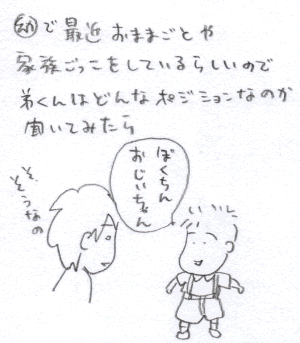 幼で最近おままごとや
家族ごっこをしているらしいので
弟くんはどんなポジションなのか
聞いてみたら
ぼくちん
おじいちゃん
そ、
そうなの